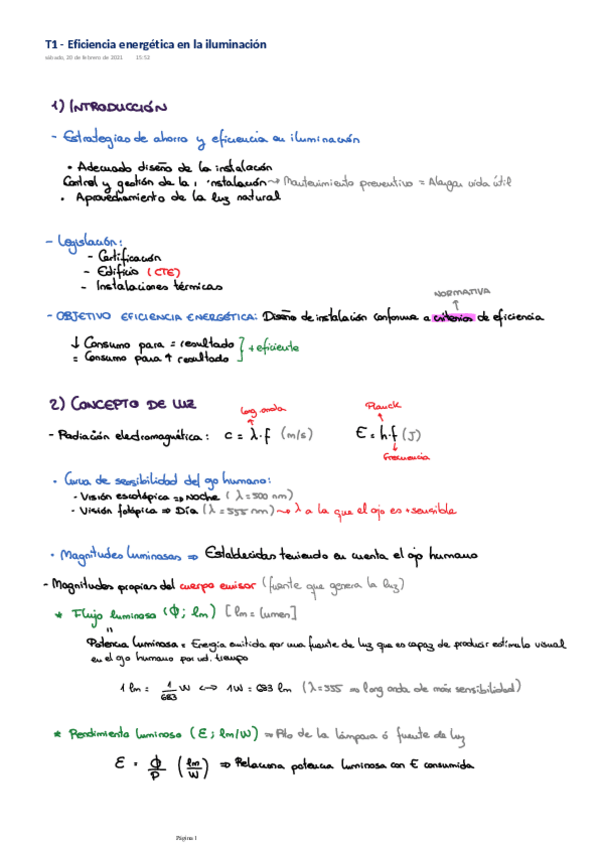 T1 - Eficiencia energética en la iluminación
sábado, 20 de febrero de 2021 15:52
1) INTRODUCCIÓN
- Estrategias de ahorro y eficiencia en iluminación
• Adecuado diseño de la instalación
Control y gestión de la instalación → Mantenimiento preventivo = Alargar vida útil
• Aprovechamiento de la luz natural
- Legislación:
- Certificación
- Edificio (CTE)
- Instalaciones térmicas
NORMATIVA
↑
- OBJETIVO EFICIENCIA ENERGÉTICA: Diseño de instalación conforme a criterios de eficiencia
↓ Consumo para = resultado
= Consumo para ↑ resultado } + eficiente
2) CONCEPTO DE LUZ
long. onda Planck
- Radiación electromagnética: c = λ·f (m/s) E = h·f (J)
frecuencia
• Curva de sensibilidad del ojo humano:
• Visión escotópica ⇒ Noche (λ = 500 nm)
• Visión fotópica ⇒ Día (λ = 555 nm) → λ a la que el ojo es + sensible
• Magnitudes luminosas ⇒ Establecidas teniendo en cuenta el ojo humano
- Magnitudes propias del cuerpo emisor (fuente que genera la luz)
* Flujo luminoso (Φ; lm) [lm = lumen]
"
Potencia luminosa = Energía emitida por una fuente de luz que es capaz de producir estímulo visual
en el ojo humano por ud. tiempo
1 lm = 1/683 W ↔ 1W = 683 lm (λ=555 ⇒ long onda de máx sensibilidad)
* Rendimiento luminoso (ε; lm/W) ⇒ Rto de la lámpara ó fuente de luz
ε = Φ/P (lm/W) ⇒ Relaciona potencia luminosa con E consumida
Página 1